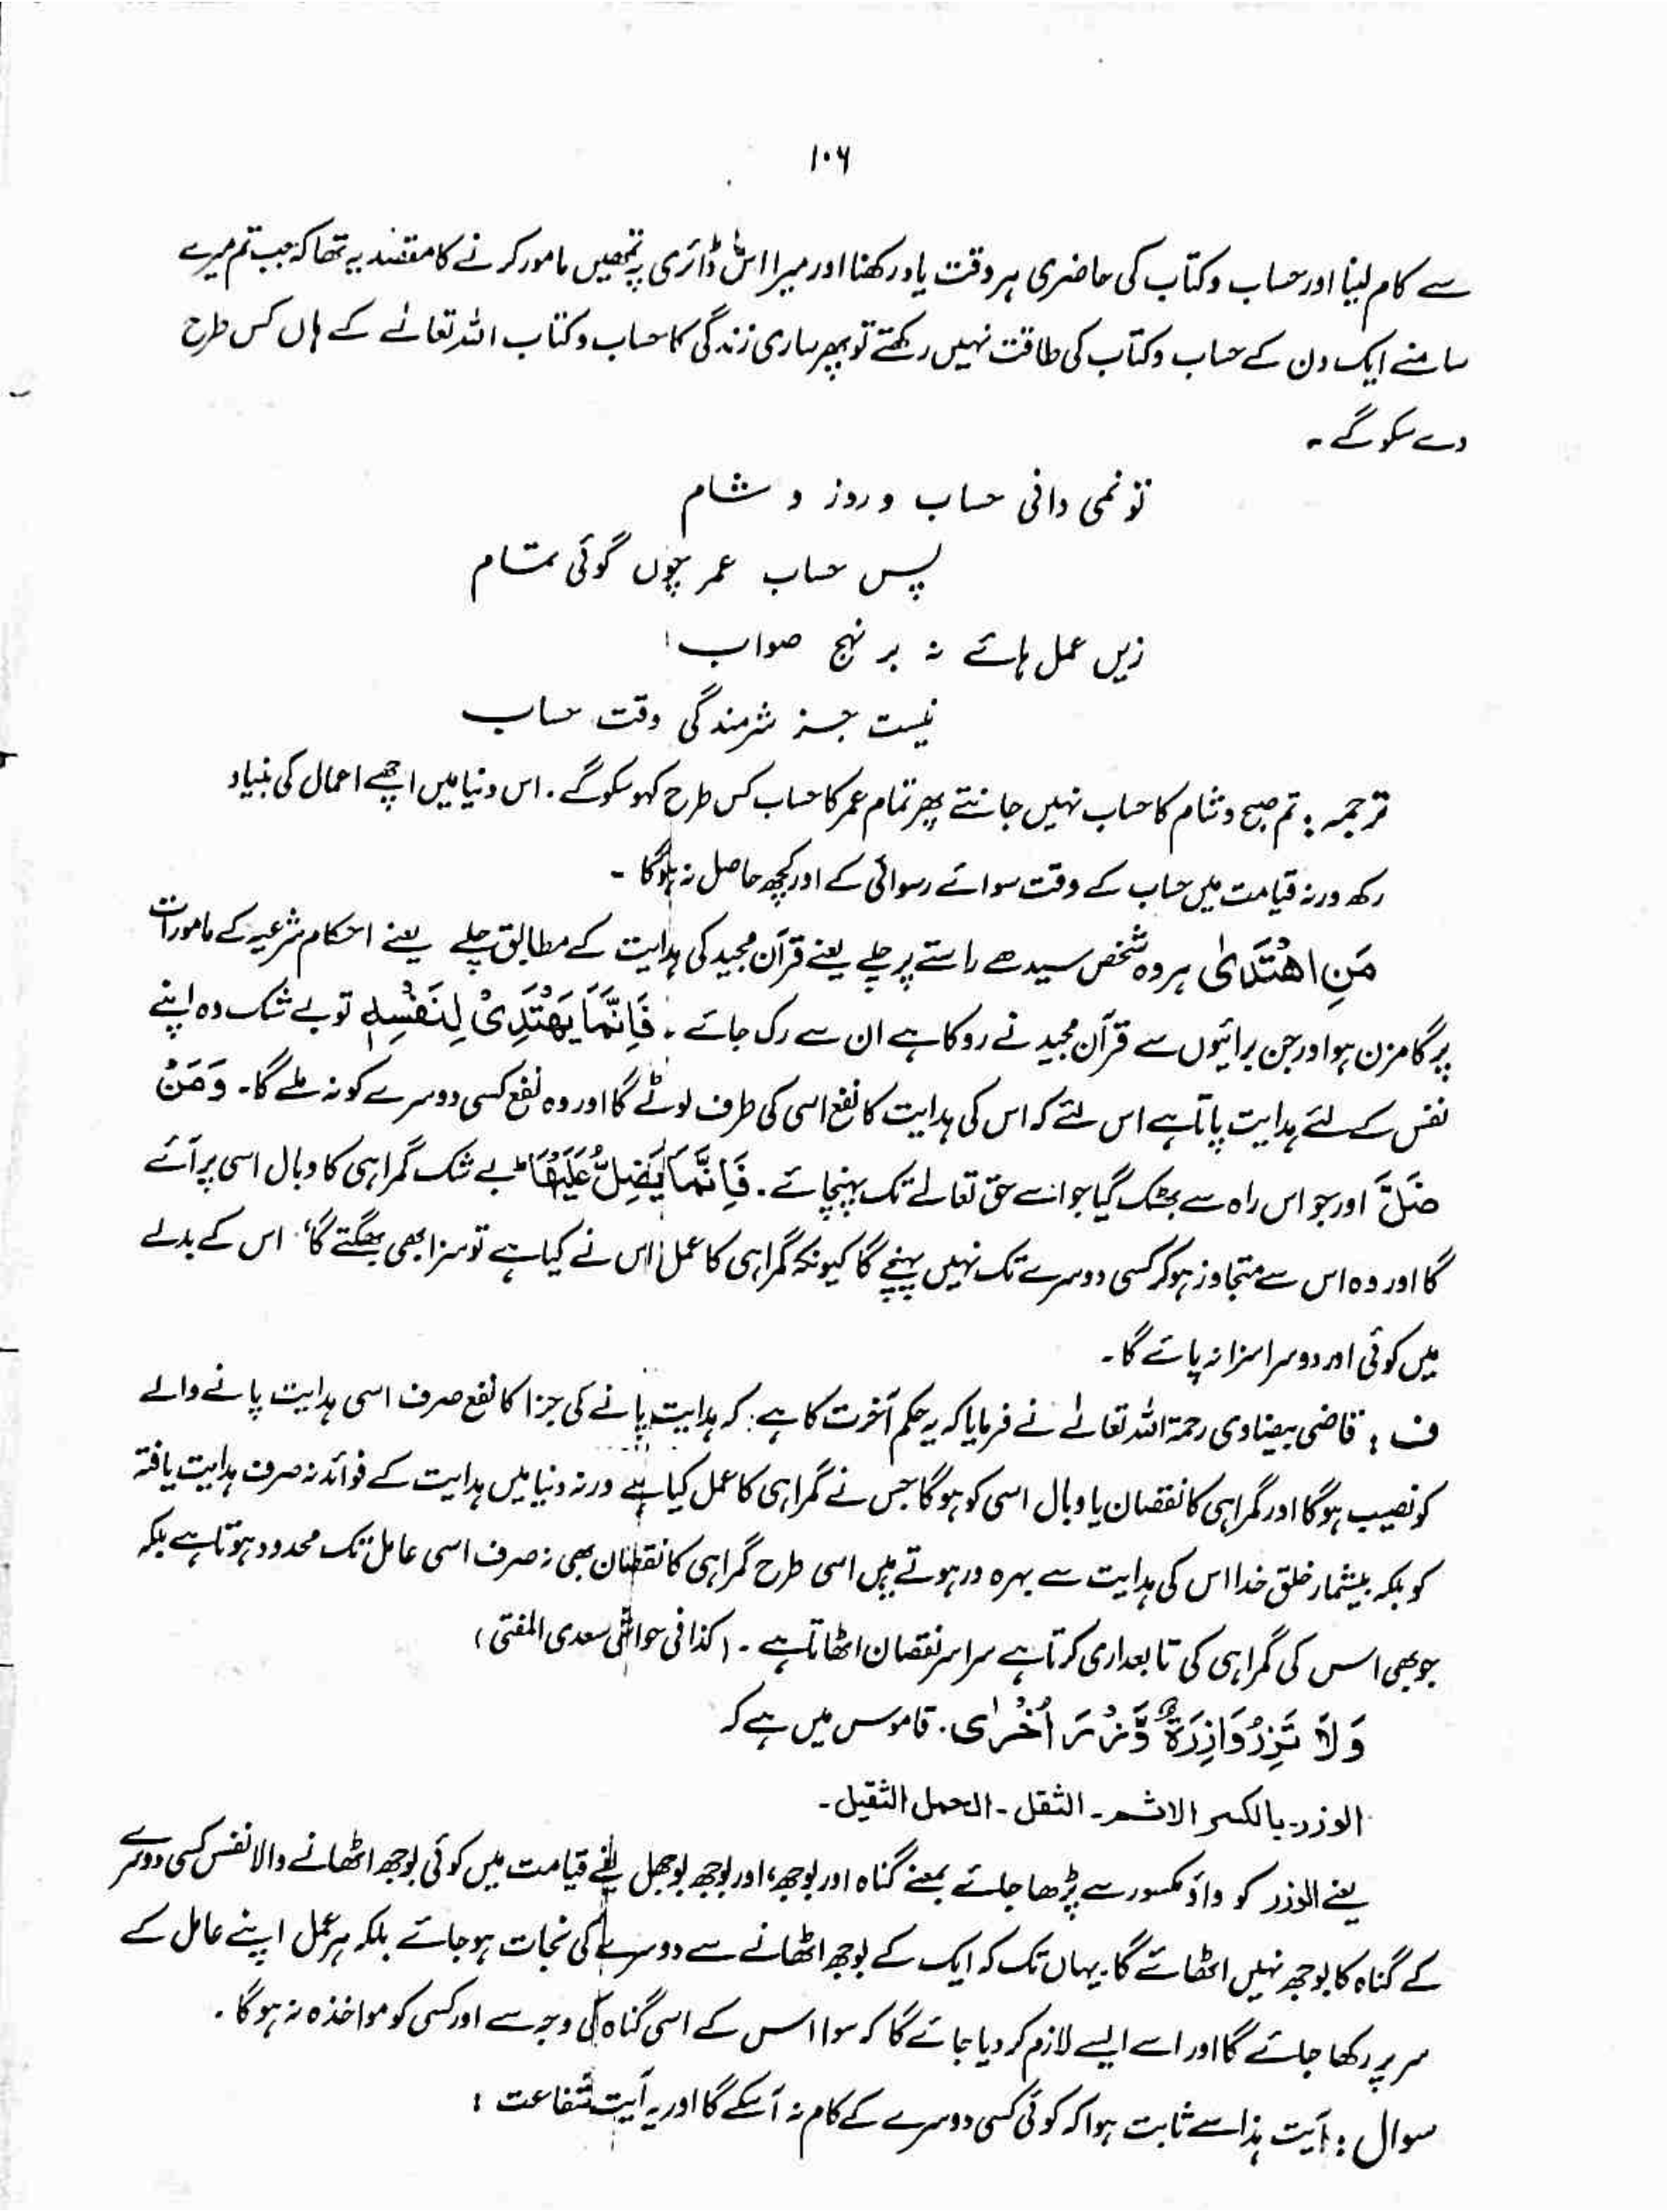 ۱۰۶
سے کام لینا اور حساب و کتاب کی حاضری ہر وقت یاد رکھنا اور میرا اس ڈائری پر تمھیں مامور کرنے کا مقصد یہ تھا کہ جب تم میرے
سامنے ایک دن کے حساب و کتاب کی طاقت نہیں رکھتے تو پھر ساری زندگی کا حساب و کتاب اللہ تعالےٰ کے ہاں کس طرح
دے سکو گے۔
تو نمی دانی حساب و روز و شام
پس حساب عمر چوں گوئی تمام
زیں عمل ہائے نہ بر نہج صواب!
نیست جز شرمندگی وقت حساب
ترجمہ: تم صبح و شام کا حساب نہیں جانتے پھر تمام عمر کا حساب کس طرح کہو سکو گے۔ اس دنیا میں اچھے اعمال کی بنیاد
رکھ ورنہ قیامت میں حساب کے وقت سوائے رسوائی کے اور کچھ حاصل نہ ہوگا۔
مَنِ اهْتَدٰى ہر وہ شخص سیدھے راستے پر چلے یعنے قرآن مجید کی ہدایت کے مطابق چلے یعنے احکام شرعیہ کے مامورات
پر گامزن ہو اور جن برائیوں سے قرآن مجید نے روکا ہے ان سے رک جائے۔ فَاِنَّمَا يَهْتَدِىْ لِنَفْسِهٖ تو بے شک وہ اپنے
نفس کے لئے ہدایت پاتا ہے اس لئے کہ اس کی ہدایت کا نفع اسی کی طرف لوٹے گا اور وہ نفع کسی دوسرے کو نہ ملے گا۔ وَمَنْ
ضَلَّ اور جو اس راہ سے بھٹک گیا جو اسے حق تعالےٰ تک پہنچائے۔ فَاِنَّمَا يَضِلُّ عَلَيْهَا ط بے شک گمراہی کا وبال اسی پر آئے
گا اور وہ اس سے متجاوز ہو کر کسی دوسرے تک نہیں پہنچے گا کیونکہ گمراہی کا عمل اس نے کیا ہے تو سزا بھی بھگتے گا، اس کے بدلے
میں کوئی اور دوسرا سزا نہ پائے گا۔
ف: قاضی بیضاوی رحمۃ اللہ تعالےٰ نے فرمایا کہ یہ حکم آخرت کا ہے۔ کہ ہدایت پانے کی جزا کا نفع صرف اسی ہدایت پانے والے
کو نصیب ہوگا اور گمراہی کا نقصان یا وبال اسی کو ہوگا جس نے گمراہی کا عمل کیا ہے ورنہ دنیا میں ہدایت کے فوائد نہ صرف ہدایت یافتہ
کو بلکہ بیشمار خلق خدا اس کی ہدایت سے بہرہ ور ہوتے ہیں اسی طرح گمراہی کا نقصان بھی نہ صرف اسی عامل تک محدود ہوتا ہے بلکہ
جو بھی اس کی گمراہی کی تابعداری کرتا ہے سراسر نقصان اٹھاتا ہے۔ (کذا فی حواشی سعدی المفتی)
وَلَا تَزِرُ وَازِرَةٌ وِّزْرَ اُخْرٰى۔ قاموس میں ہے کہ
الوزر۔ بالکسر الاثم۔ الثقل۔ الحمل الثقیل۔
یعنے الوزر کو واؤ مکسور سے پڑھا جائے بمعنے گناہ اور بوجھ، اور بوجھ بوجھل یعنے قیامت میں کوئی بوجھ اٹھانے والا نفس کسی دوسرے
کے گناہ کا بوجھ نہیں اٹھائے گا۔ یہاں تک کہ ایک کے بوجھ اٹھانے سے دوسرے کی نجات ہو جائے بلکہ ہر عمل اپنے عامل کے
سر پر رکھا جائے گا اور اسے ایسے لازم کر دیا جائے گا کہ سوا اس کے اسی گناہ کی وجہ سے اور کسی کو مواخذہ نہ ہوگا۔
سوال: آیت ہذا سے ثابت ہوا کہ کوئی کسی دوسرے کے کام نہ آسکے گا اور یہ آیت شفاعت :